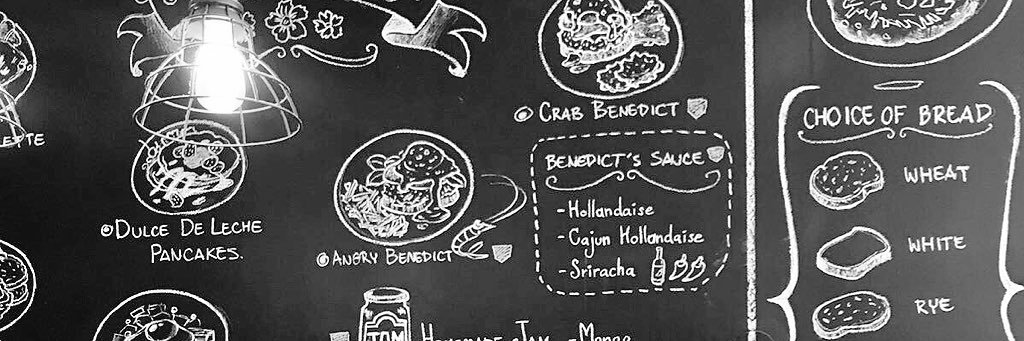 Dulce De Leche
Pancakes.
Angry Benedict
Crab Benedict
Benedict's Sauce
- Hollandaise
- Cajun Hollandaise
- Sriracha
JAM
Homemade Jam - Mango
Choice of Bread
Wheat
White
Rye